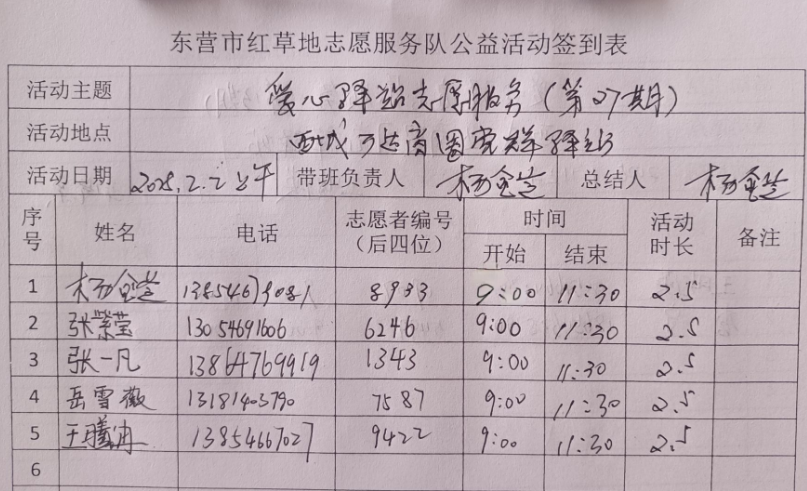 东营市红草地志愿服务队公益活动签到表
活动主题 爱心驿站志愿服务（第27期）
活动地点 西城万达商圈党群驿站
活动日期 2025.2.2上午 带班负责人 杨金芝 总结人 杨金芝
序号 姓名 电话 志愿者编号（后四位） 时间 开始 结束 活动时长 备注
1 杨金芝 8933 9:00 11:30 2.5
2 张紫莹 13054691606 6246 9:00 11:30 2.5
3 张一凡 13864769919 1343 9:00 11:30 2.5
4 岳雪薇 13181403790 7587 9:00 11:30 2.5
5 王 13854667027 9422 9:00 11:30 2.5
6